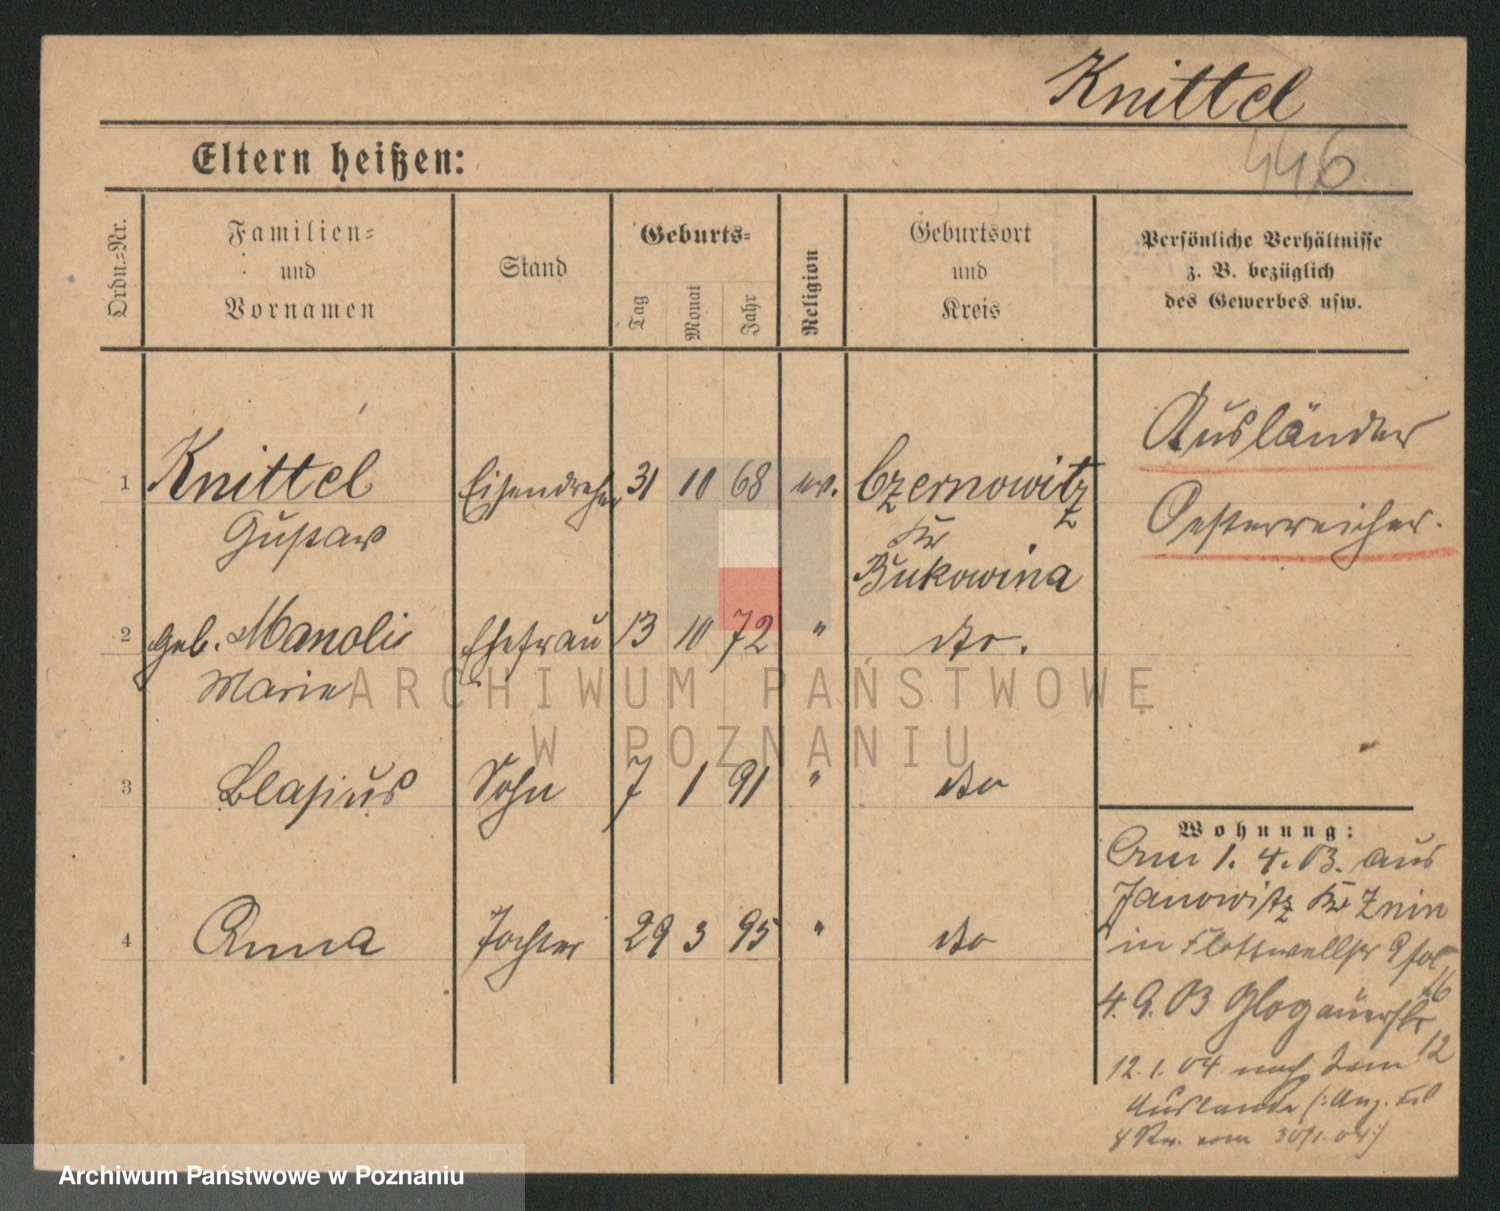 Knittel
446
Eltern heißen:
Ordn.-Nr.
Familien-
und
Vornamen
Stand
Geburts-
Tag
Monat
Jahr
Religion
Geburtsort
und
Kreis
Persönliche Verhältnisse
z. B. bezüglich
des Gewerbes usw.
Ausländer
Oesterreicher.
1 Knittel Eisendreher 31 10 68 ev. Czernowitz
Gustav Kr
Bukowina
2 geb. Manoli Ehefrau 13 10 72 " dto.
Marie
3 Blasius Sohn 7 1 91 " dto
4 Anna Tochter 29 3 95 " dto
Wohnung:
Am 1. 4. 03. aus
Janowitz Kr Znin
in Flottwellstr 9
4. 9. 03 Glogauerstr
12
12. 1. 04 nach dem
Auslande
vom 30/1. 04
ARCHIWUM PAŃSTWOWE
W POZNANIU
Archiwum Państwowe w Poznaniu